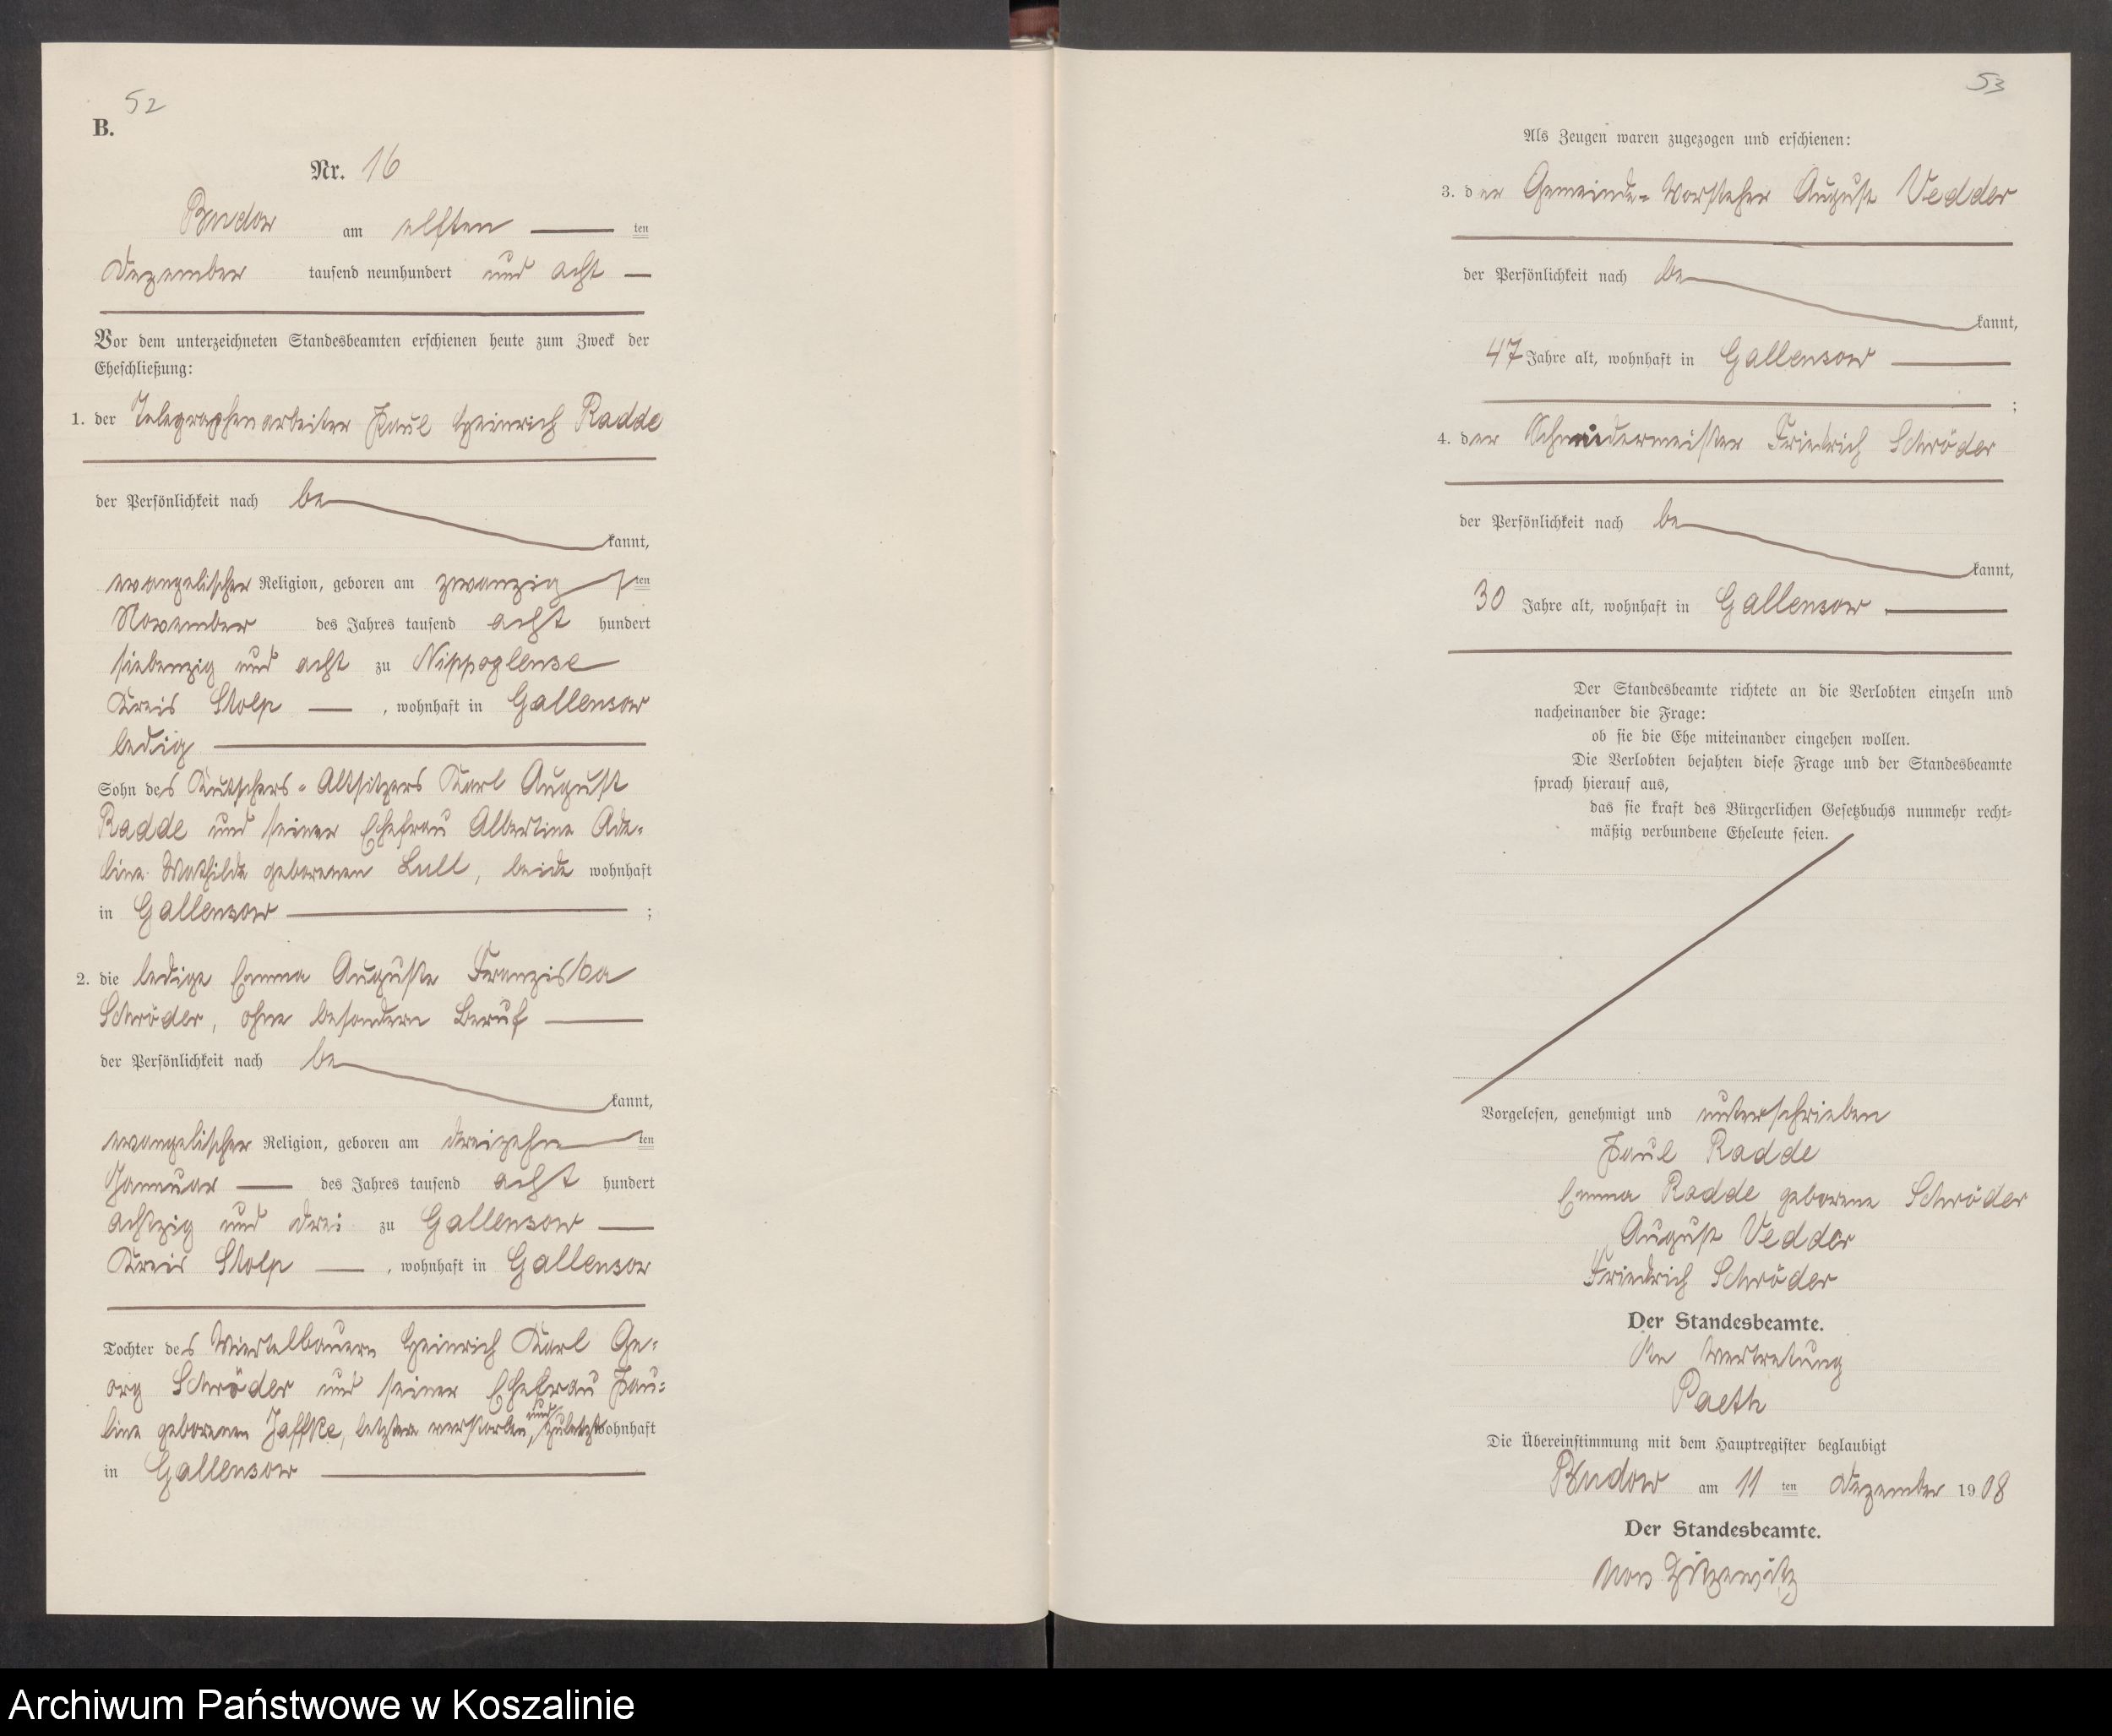 52
B.
Nr. 16
Budow am elften ten
Dezember tausend neunhundert und acht
Vor dem unterzeichneten Standesbeamten erschienen heute zum Zweck der
Eheschließung:
1. der Telegraphenarbeiter Paul Heinrich Radde
der Persönlichkeit nach be
kannt,
evangelischer Religion, geboren am zwanzigsten
November des Jahres tausend acht hundert
siebenzig und acht zu Nippoglense
Kreis Stolp, wohnhaft in Gallensow
ledig
Sohn des Kutschers-Altsitzers Karl August
Radde und seiner Ehefrau Albertine Ade-
line Mathilde geborenen Lull, beide wohnhaft
in Gallensow;
2. die ledige Emma Auguste Franziska
Schröder, ohne besondern Beruf
der Persönlichkeit nach be
kannt,
evangelischer Religion, geboren am dreizehnten
Januar des Jahres tausend acht hundert
achtzig und drei zu Gallensow
Kreis Stolp, wohnhaft in Gallensow
Tochter des Viertelbauern Heinrich Karl Ge-
org Schröder und seiner Ehefrau Pau-
line geborenen Jaffke, letztere verstorben, und zuletzt wohnhaft
in Gallensow
53
Als Zeugen waren zugezogen und erschienen:
3. der Gemeinde-Vorsteher August Vedder
der Persönlichkeit nach be
kannt,
47 Jahre alt, wohnhaft in Gallensow
;
4. der Schneidermeister Friedrich Schröder
der Persönlichkeit nach be
kannt,
30 Jahre alt, wohnhaft in Gallensow
Der Standesbeamte richtete an die Verlobten einzeln und
nacheinander die Frage:
ob sie die Ehe miteinander eingehen wollen.
Die Verlobten bejahten diese Frage und der Standesbeamte
sprach hierauf aus,
das sie kraft des Bürgerlichen Gesetzbuchs nunmehr recht-
mäßig verbundene Eheleute seien.
Vorgelesen, genehmigt und unterschrieben
Paul Radde
Emma Radde geborene Schröder
August Vedder
Friedrich Schröder
Der Standesbeamte.
In Vertretung
Paeth
Die Übereinstimmung mit dem Hauptregister beglaubigt
Budow am 11 ten Dezember 1908
Der Standesbeamte.
von Zitzewitz
Archiwum Państwowe w Koszalinie